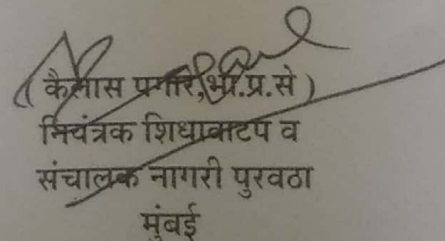 ( कैलास पगारे,भा.प्र.से )
नियंत्रक शिधावाटप व
संचालक नागरी पुरवठा
मुंबई